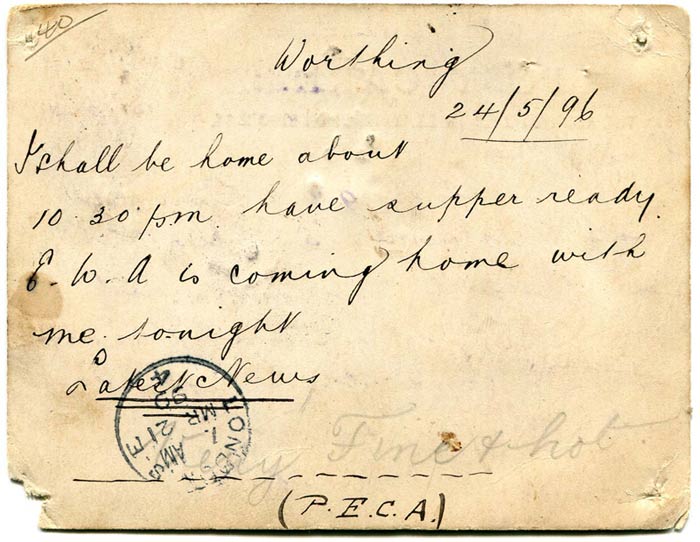 340
Worthing
24/5/96
I shall be home about
10.30 pm. have supper ready.
E. W. A is coming home with
me tonight
Latest News
Very Fine & hot
(P.E.C.A.)